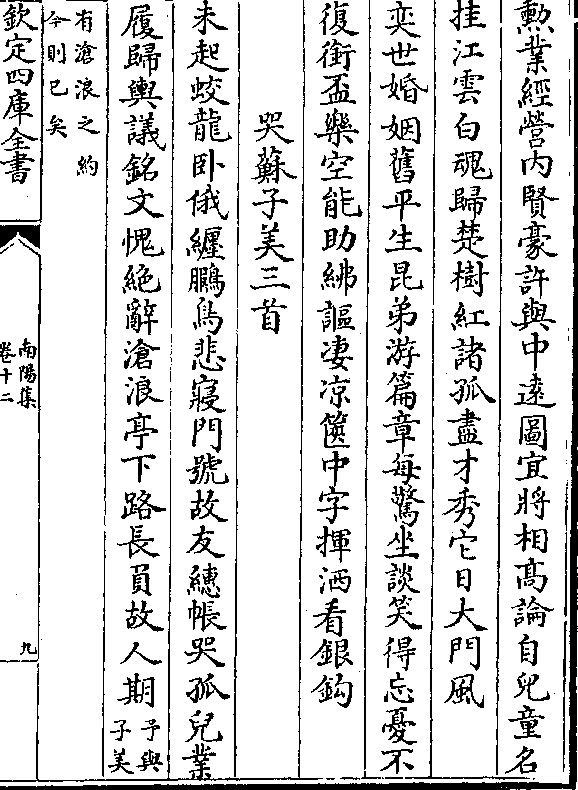 勲業經營内賢豪許與中逺圖宜將相髙論自兒童名
挂江雲白魂歸楚樹紅諸孤盡才秀它日大門風
奕世婚姻舊平生昆弟游篇章每驚坐談笑得忘憂不
復銜盃樂空能助紼謳凄凉篋中字揮洒看銀鈎
哭蘇子美三首
未起蛟龍卧俄纒鵩鳥悲寢門號故友繐帳哭孤兒業
履歸輿議銘文愧絶辭滄浪亭下路長負故人期予與子美
有滄浪之約今則已矣
欽定四庫全書
南陽集
卷十二
九